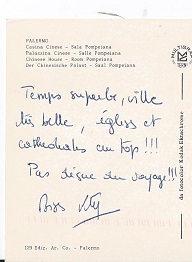 PALERMO
Casina Cinese - Sala Pompeiana
Palazzina Cinese - Salle Pompeiana
Chinese House - Room Pompeiana
Der Chinesische Palast - Saal Pompeiana
Temps superbe, ville
très belle, églises et
cathédrales au top !!!
Pas déçue du voyage !!!
da fotocolor Kodak Ektachrome
129 Ediz. Ar. Co. - Palermo